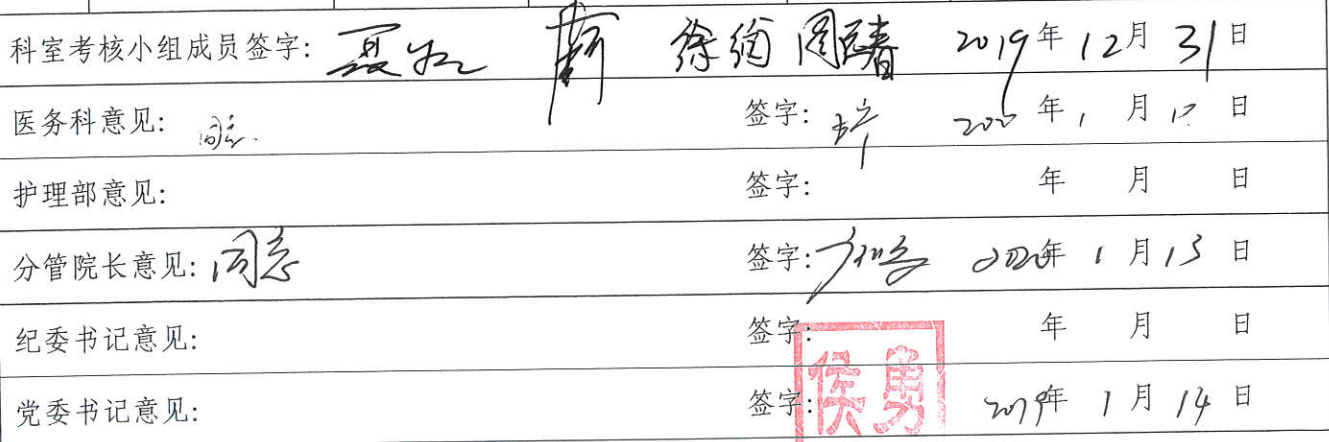 科室考核小组成员签字: 徐 2019年12月31日
医务科意见: 同意. 签字: 2020年1月 日
护理部意见: 签字: 年 月 日
分管院长意见: 同意 签字: 2020年1月13日
纪委书记意见: 签字: 年 月 日
党委书记意见: 签字: 侯勇 2019年1月14日